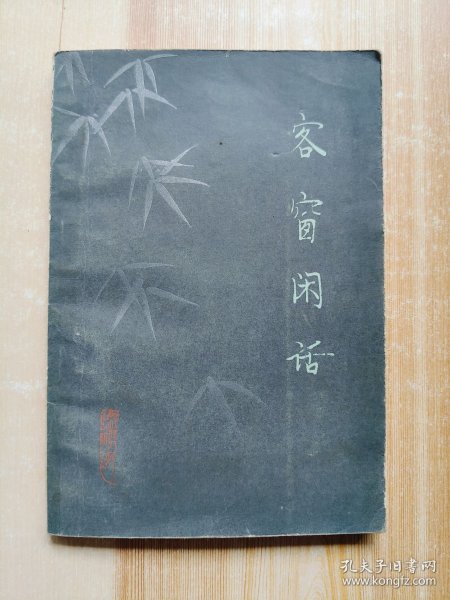 客窗闲话
孔夫子旧书网
www.kongfz.com